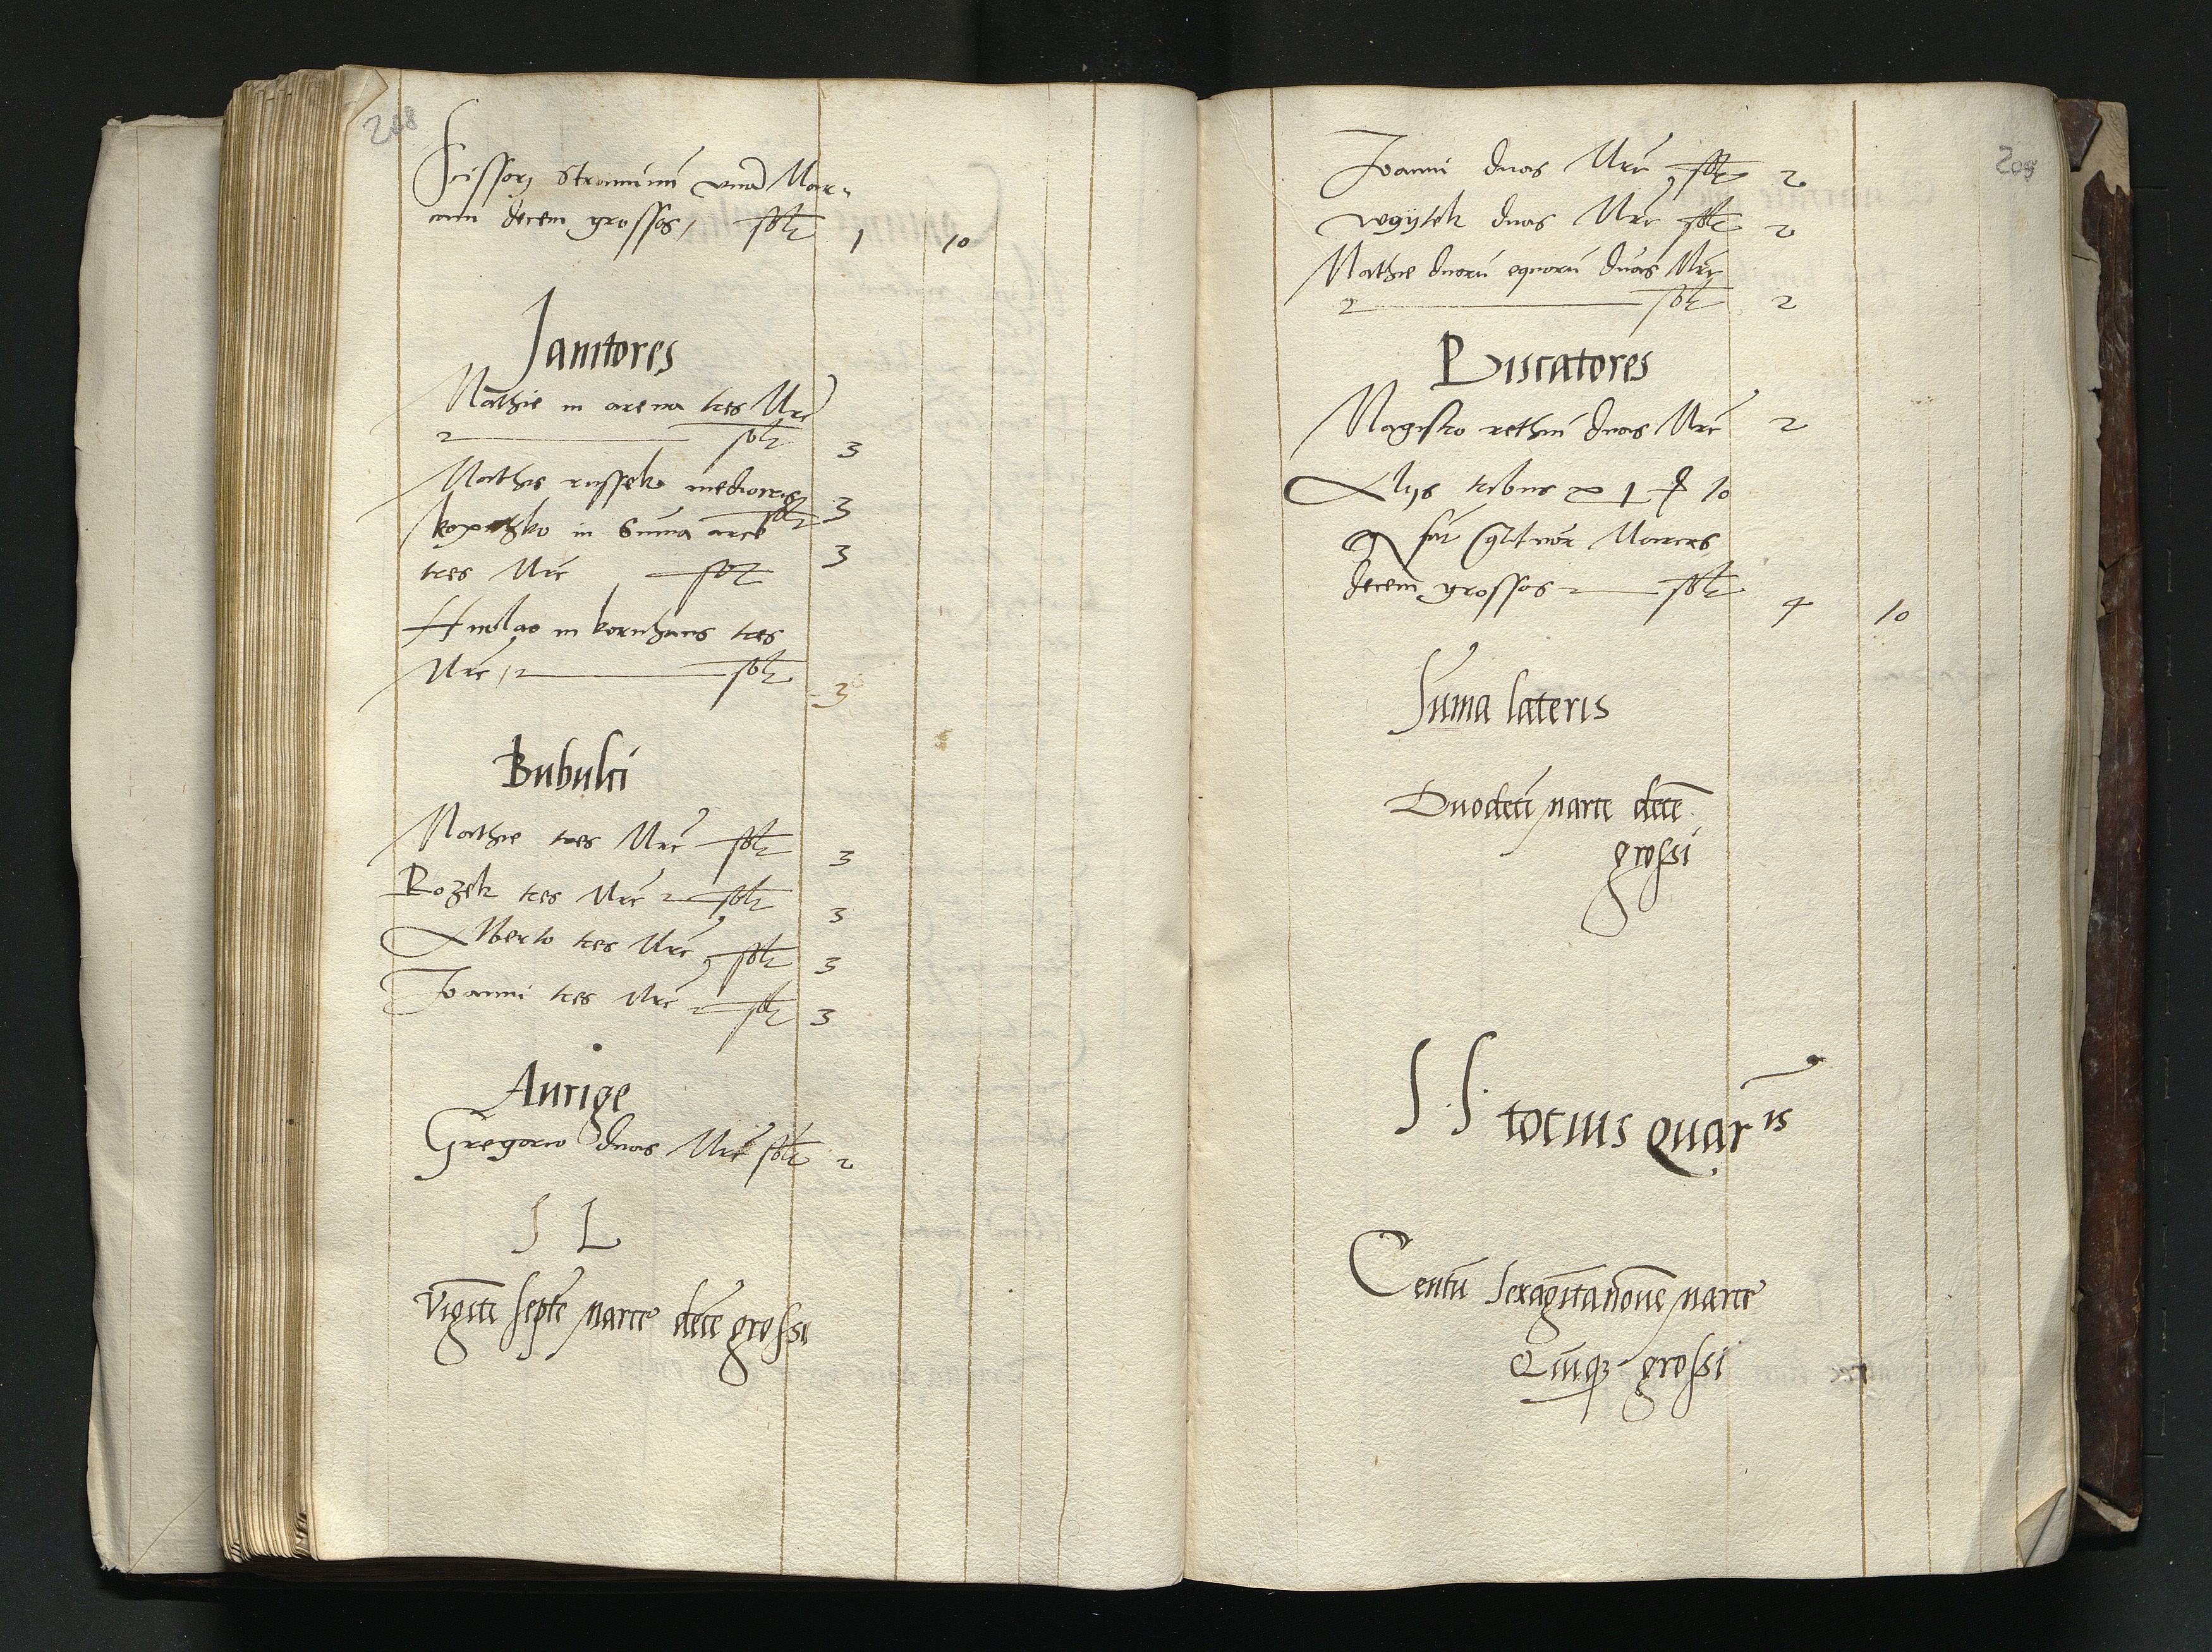 208
Scissori straminum vnã Mar-
cam decem grossos solt 1 10
Janitores
Mathie in arena tres Mrc
solt 3
Mathie russek mediocris
solt 3
in Suma arce 3
tres Mrc solt
in kornhaus tres
Mrc solt 3
Bubulci
Mathie tres Mrc solt 3
Rozek tres Mrc solt 3
Alberto tres Mrc solt 3
Joanni tres Mrc solt 3
Aurige
Gregorio duas Mrc solt 2
S L
Vigiti septē marce decē grossi
209
Joanni duas Mrc solt 2
woytek duas Mrc solt 2
Mathie duorū equorū duas Mrc
solt 2
Piscatores
Magistro rethiū duas Mrc 2
Alys tribus 1 10
fiūt Marcas
decem grossos solt 4 10
Sūma lateris
Duodeci marce decē
grossi
S S totius quar is
Centū sexagītanoue marce
Quīqȝ grossi